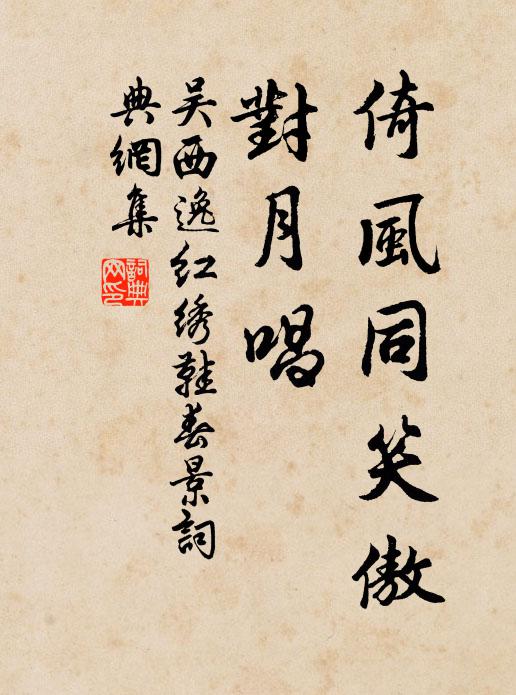 倚風同笑傲
對月唱
吴西逸红绣鞋春景詞
典網集
詞典网印